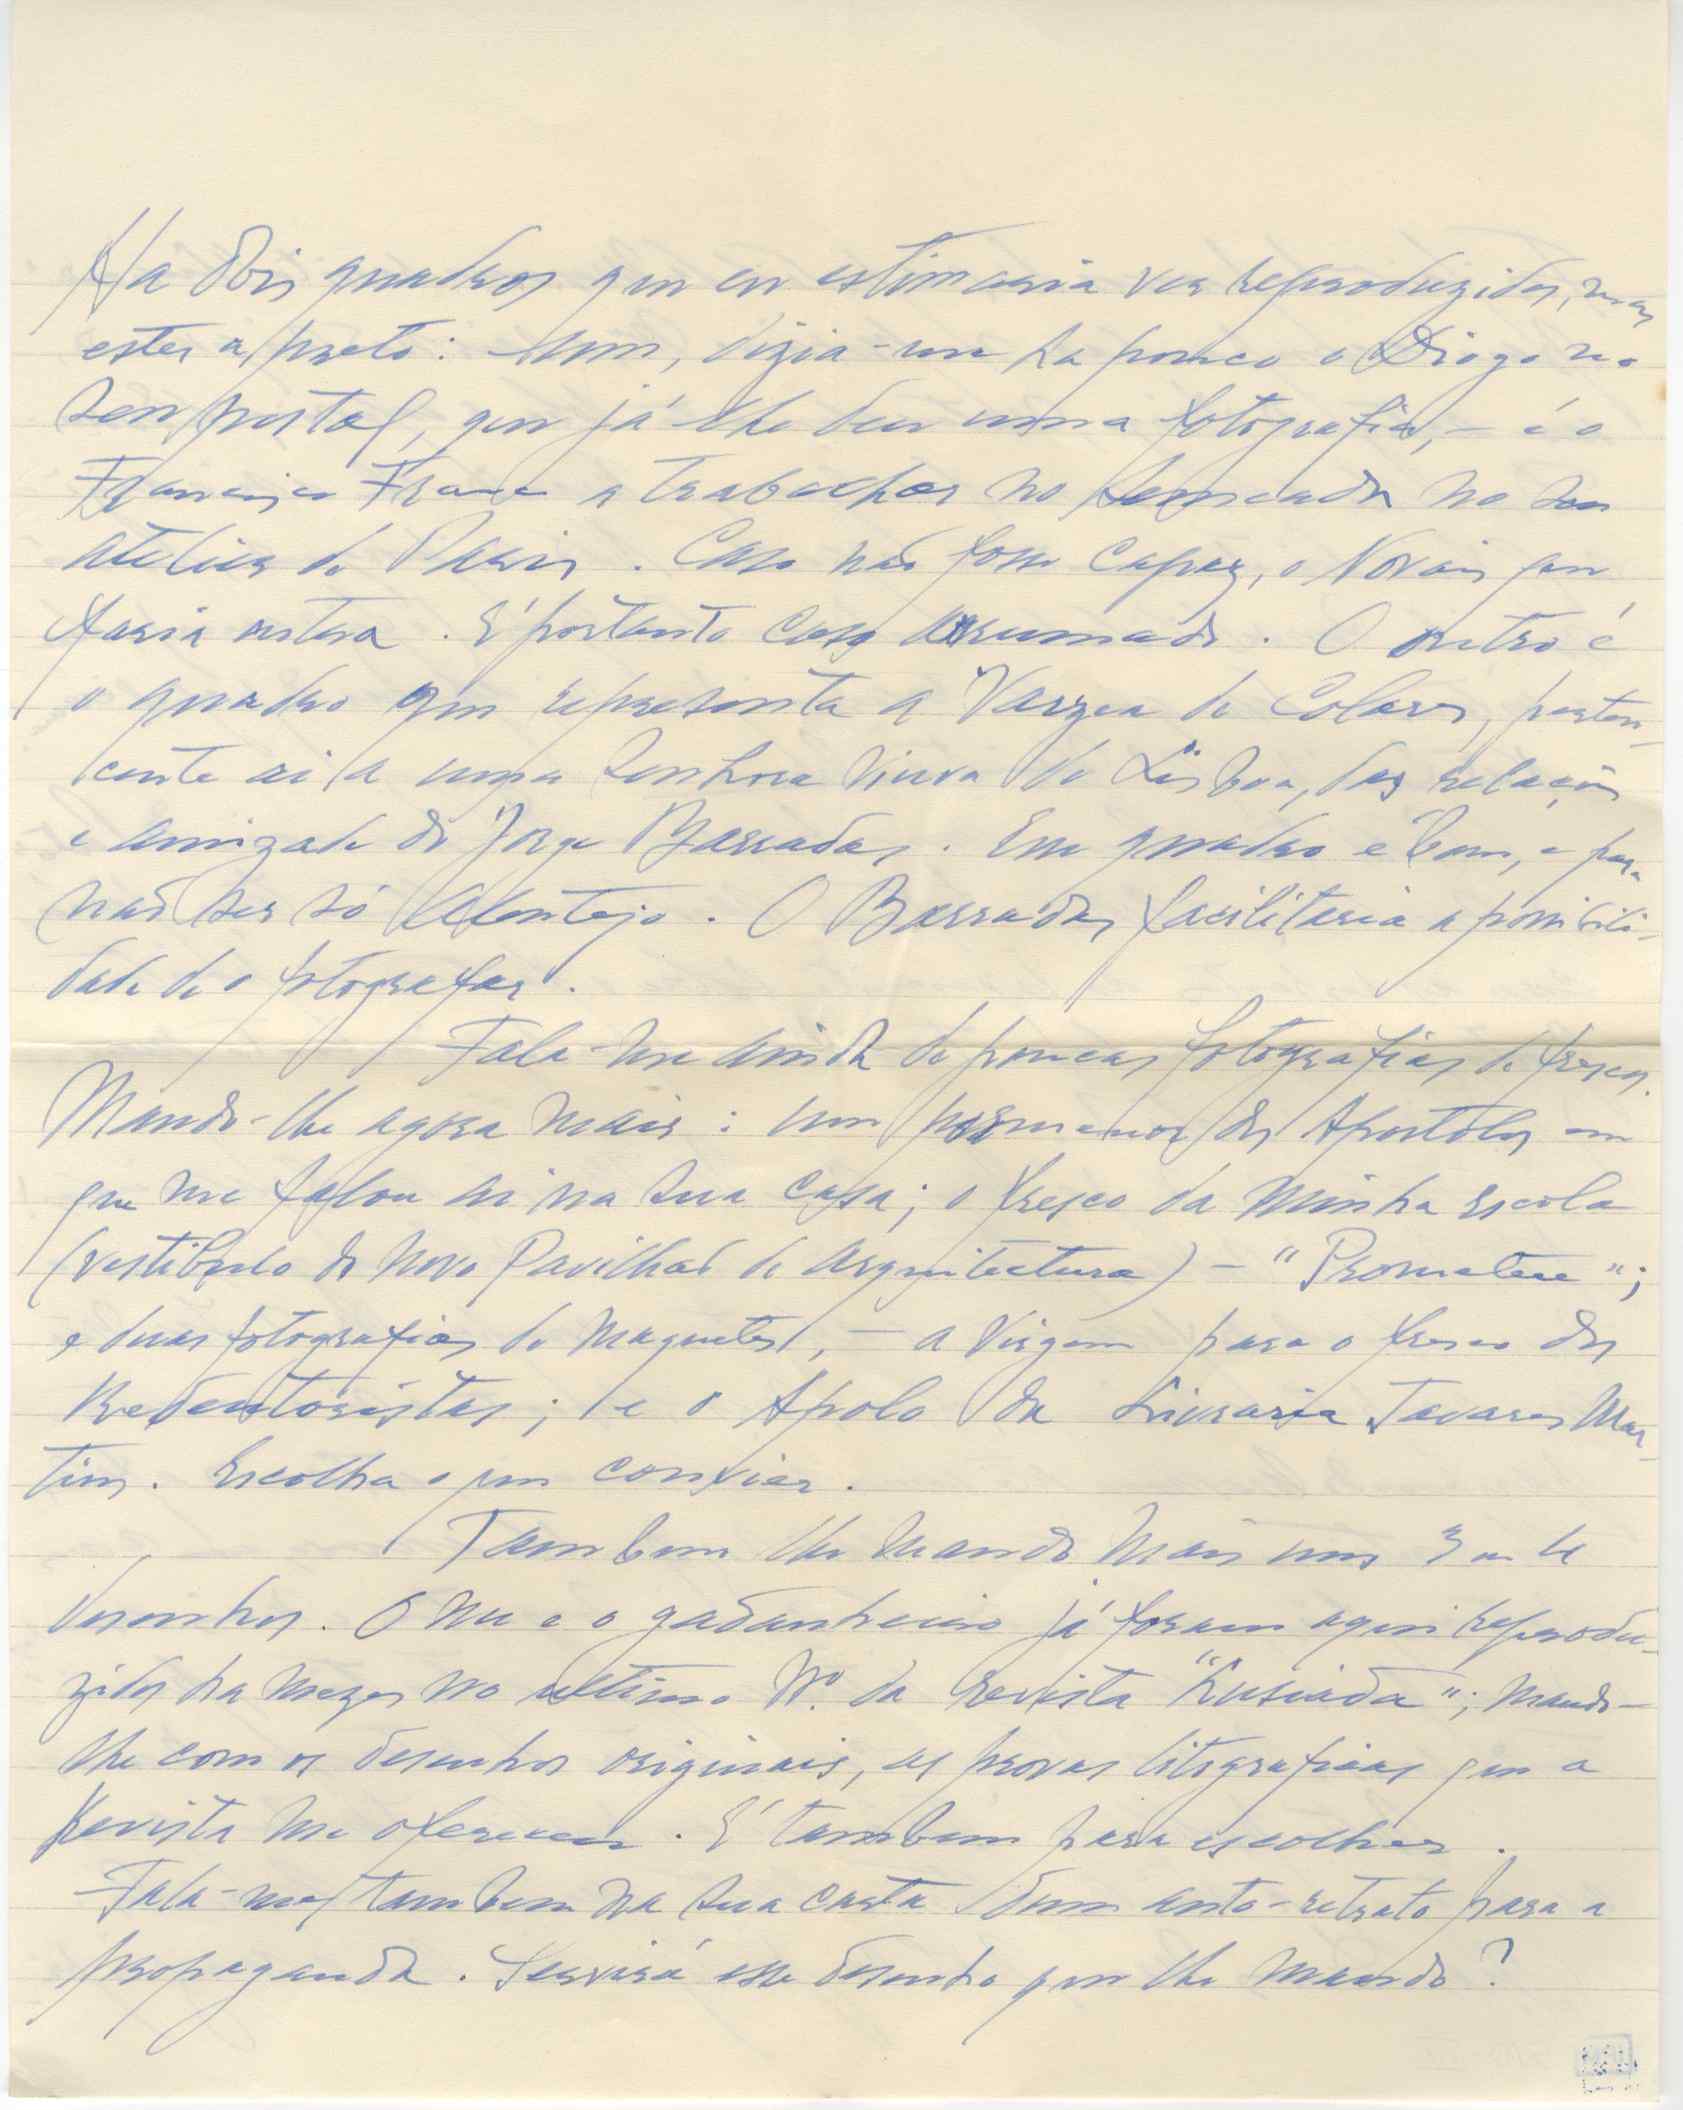 Ha dois quadros que eu estimaria ver reproduzidos, mas
estes a preto: Um, dizia-me ha pouco o Diogo no
seu postal, que já lhe deu uma fotografia, — é o
Francisco Franco a trabalhar no Semeador no seu
atelier de Paris. Caso não fosse capaz, o Novais que
faria outra. É portanto caso arrumado. O outro é
o quadro que representa a Varzea de Colares, perten-
cente aí a uma Senhora viuva de Lisboa, das relações
e amizade do Jorge Barradas. Esse quadro é bom, e para
não ser só Alentejo. O Barradas facilitaria a possibili-
dade de o fotografar.
Fala-me ainda de poucas fotografias de frescos.
Mando-lhe agora mais: um pormenor dos Apostolos em
que me falou aí na sua casa; o fresco da minha Escola
(vestibulo do novo Pavilhão de Arquitectura) — "Prometeu";
e duas fotografias de maquetes, — a Virgem para o fresco dos
Redentoristas; e o Apolo da Livraria Tavares Mar-
tins. Escolha o que convier.
Tambem lhe mando mais uns 3 ou 4
desenhos. O nu e o gadanheiro já foram aqui reprodu-
zidos ha mezes no ultimo Nº. da revista "Lusiada"; mando-
lhe com os desenhos originais, as provas litograficas que a
Revista me ofereceu. É tambem para escolher.
Fala-me tambem na sua carta dum auto-retrato para a
propaganda. Servirá esse desenho que lhe mando?